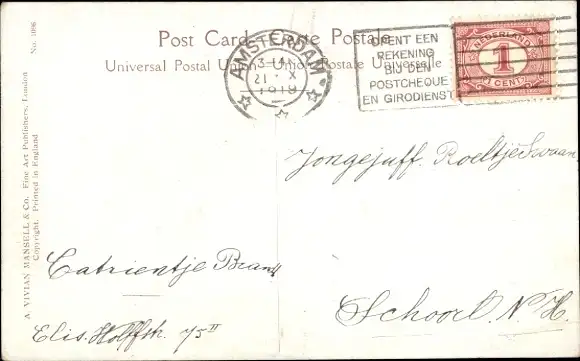 No. 1096
Post Card - Carte Postale
Universal Postal Union - Union Postale Universelle
AMSTERDAM
21 X
1919
OPENT EEN
REKENING
BIJ DEN
POSTCHEQUE
EN GIRODIENST
NEDERLAND
1
CENT
A. VIVIAN MANSELL & Co. Fine Art Publishers, London
Copyright. Printed in England
Jongejuff. Roeltje Swaan
Catrientje Brandt
Elis. Wolffstr. 75 II
Schoorl. N. H.